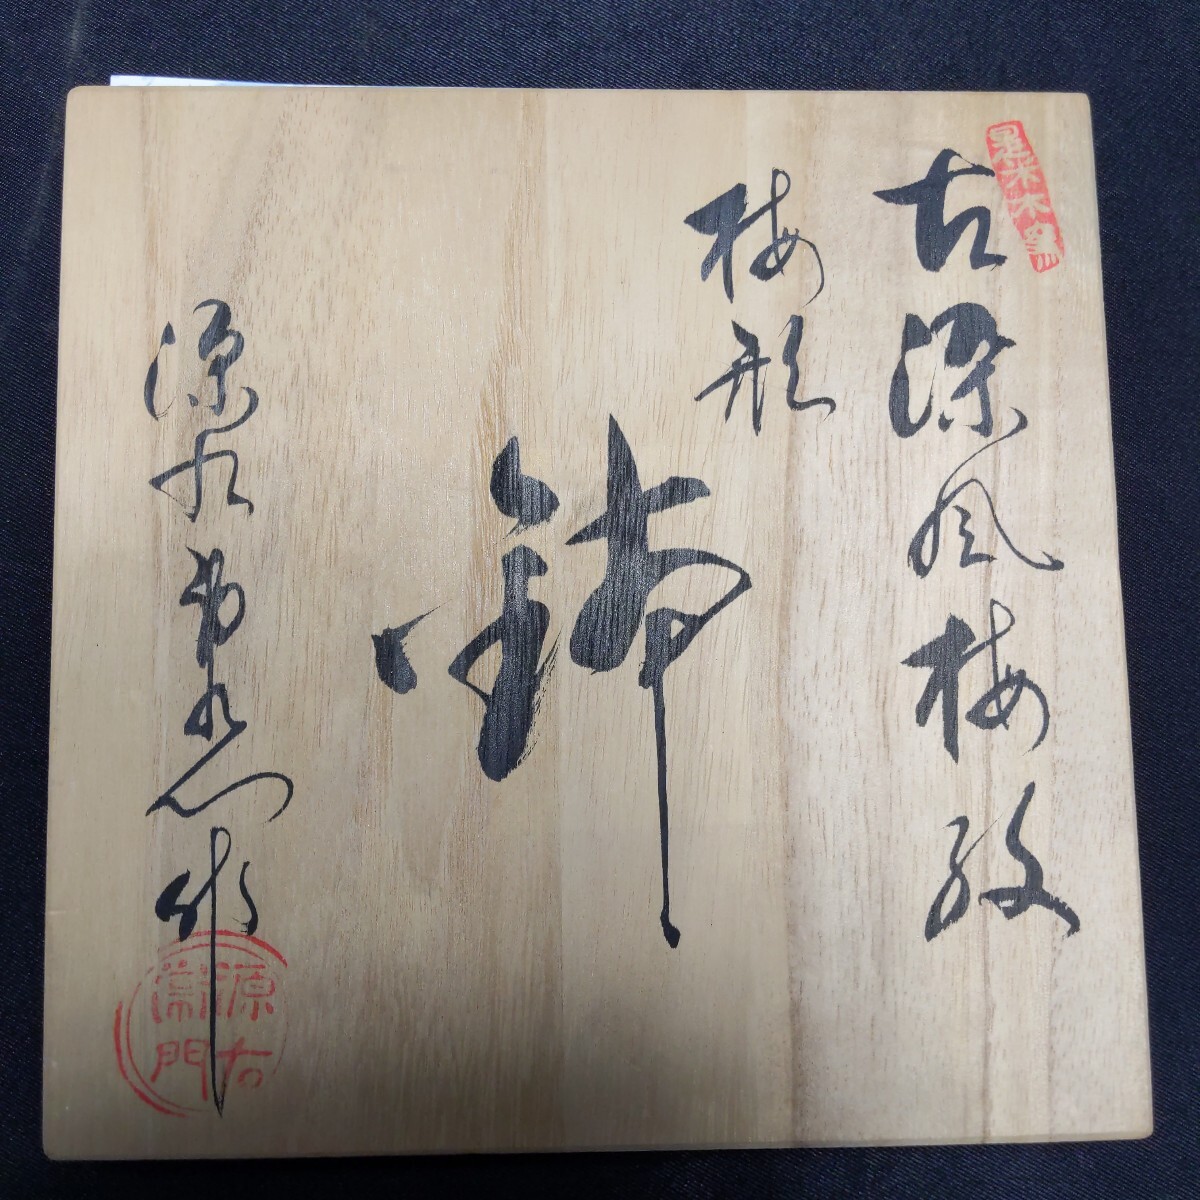 古染風梅紋
梅形
鉢
源右衛門作
源右
衛門